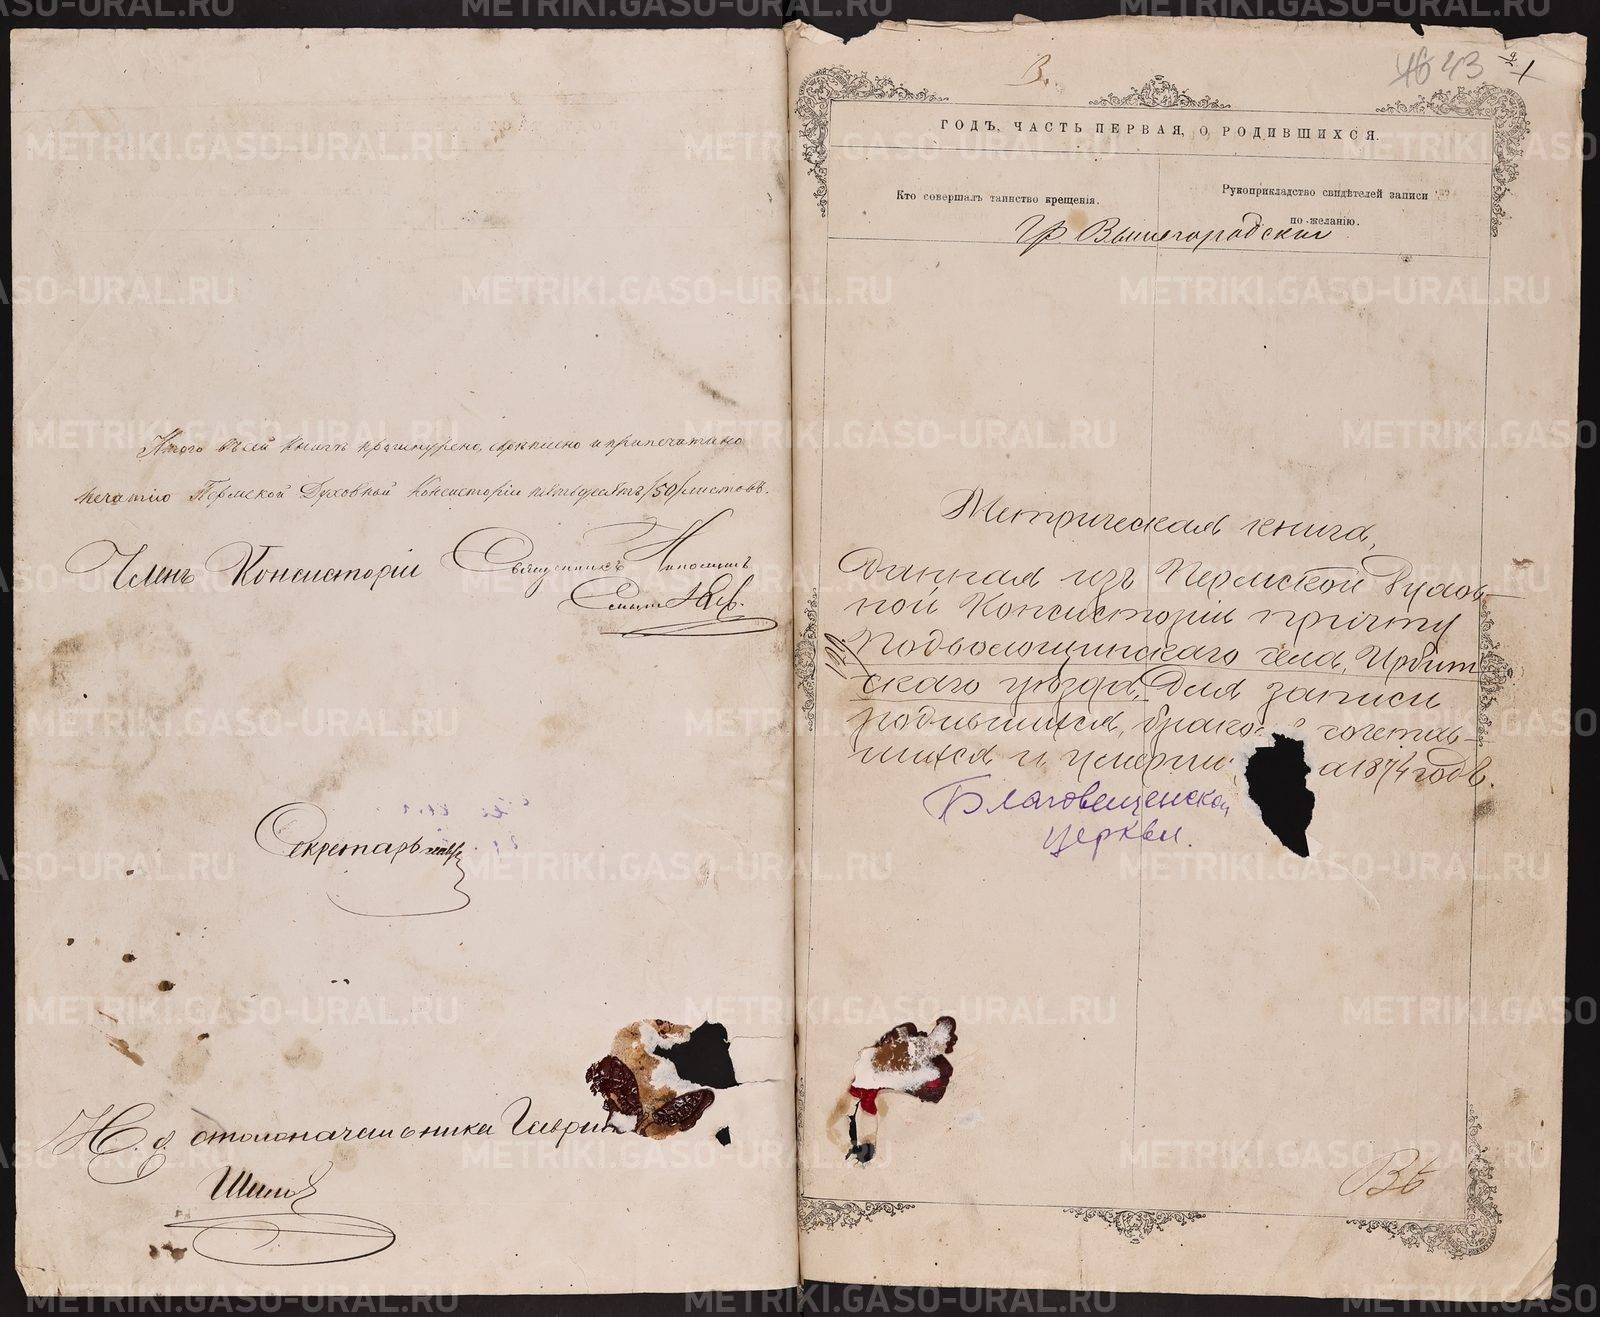 Итого въ сей книгѣ прошнурено, скрѣплено и припечатано
печатію Пермской Духовной Консисторіи пятьдесятъ /50/ листовъ.
Членъ Консисторіи Священникъ
Секретарь
И. д. столоначальника Гаври
43 1
В.
ГОДЪ, ЧАСТЬ ПЕРВАЯ, О РОДИВШИХСЯ.
Кто совершалъ таинство крещенія.
Рукоприкладство свидѣтелей записи
по желанію.
Гр Вышегородскій
Метрическая книга,
данная изъ Пермской Духов-
ной Консисторіи причту
Подволошинскаго села, Ирбит
скаго уѣзда, для записи
родившихся, брако сочетав-
шихся и умерши а 1874 годъ.
Благовещенской
церкви.
METRIKI.GASO-URAL.RU